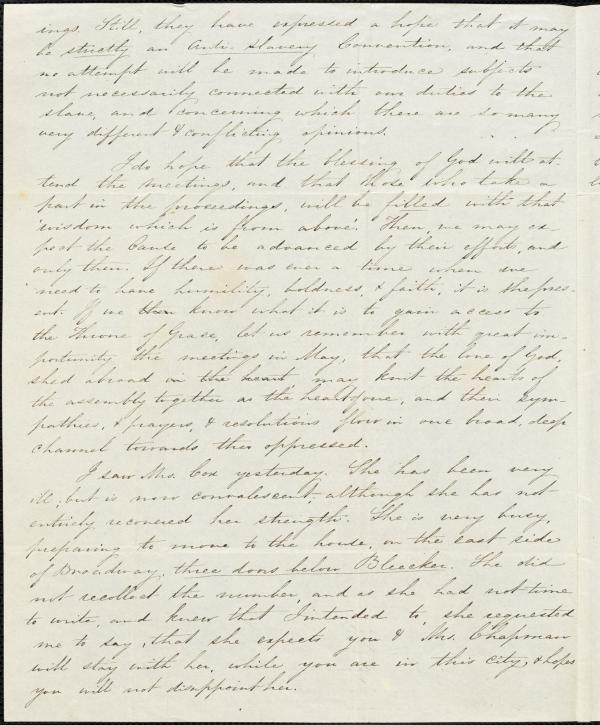 ings. Still, they have expressed a hope that it may
be strictly an Anti-Slavery Convention, and that
no attempt will be made to introduce subjects
not necessarily connected with our duties to the
slave, and concerning which there are so many
very different & conflicting opinions.
I do hope that the blessing of God will at-
tend the meetings, and that those who take a
part in the proceedings, will be filled with that
wisdom which is from above. Then, we may ex-
pect the Cause to be advanced by their efforts, and
only then. If there was ever a time when we
need to have humility, boldness, & faith, it is the pres-
ent. If we then know what it is to gain access to
the Throne of Grace, let us remember with great im-
portunity the meetings in May, that the love of God,
shed abroad in the heart, may knit the hearts of
the assembly together as the heart of one, and their sym-
pathies, & prayers, & resolutions flow in one broad, deep
channel towards the oppressed.
I saw Mrs. Cox yesterday. She has been very
ill, but is now convalescent, although she has not
entirely recovered her strength. She is very busy,
preparing to move to the house, on the east side
of Broadway, three doors below Bleecker. She did
not recollect the number, and as she had not time
to write, and knew that I intended to, she requested
me to say, that she expects you & Mrs. Chapman
will stay with her, while you are in this city, & hopes
you will not disappoint her.